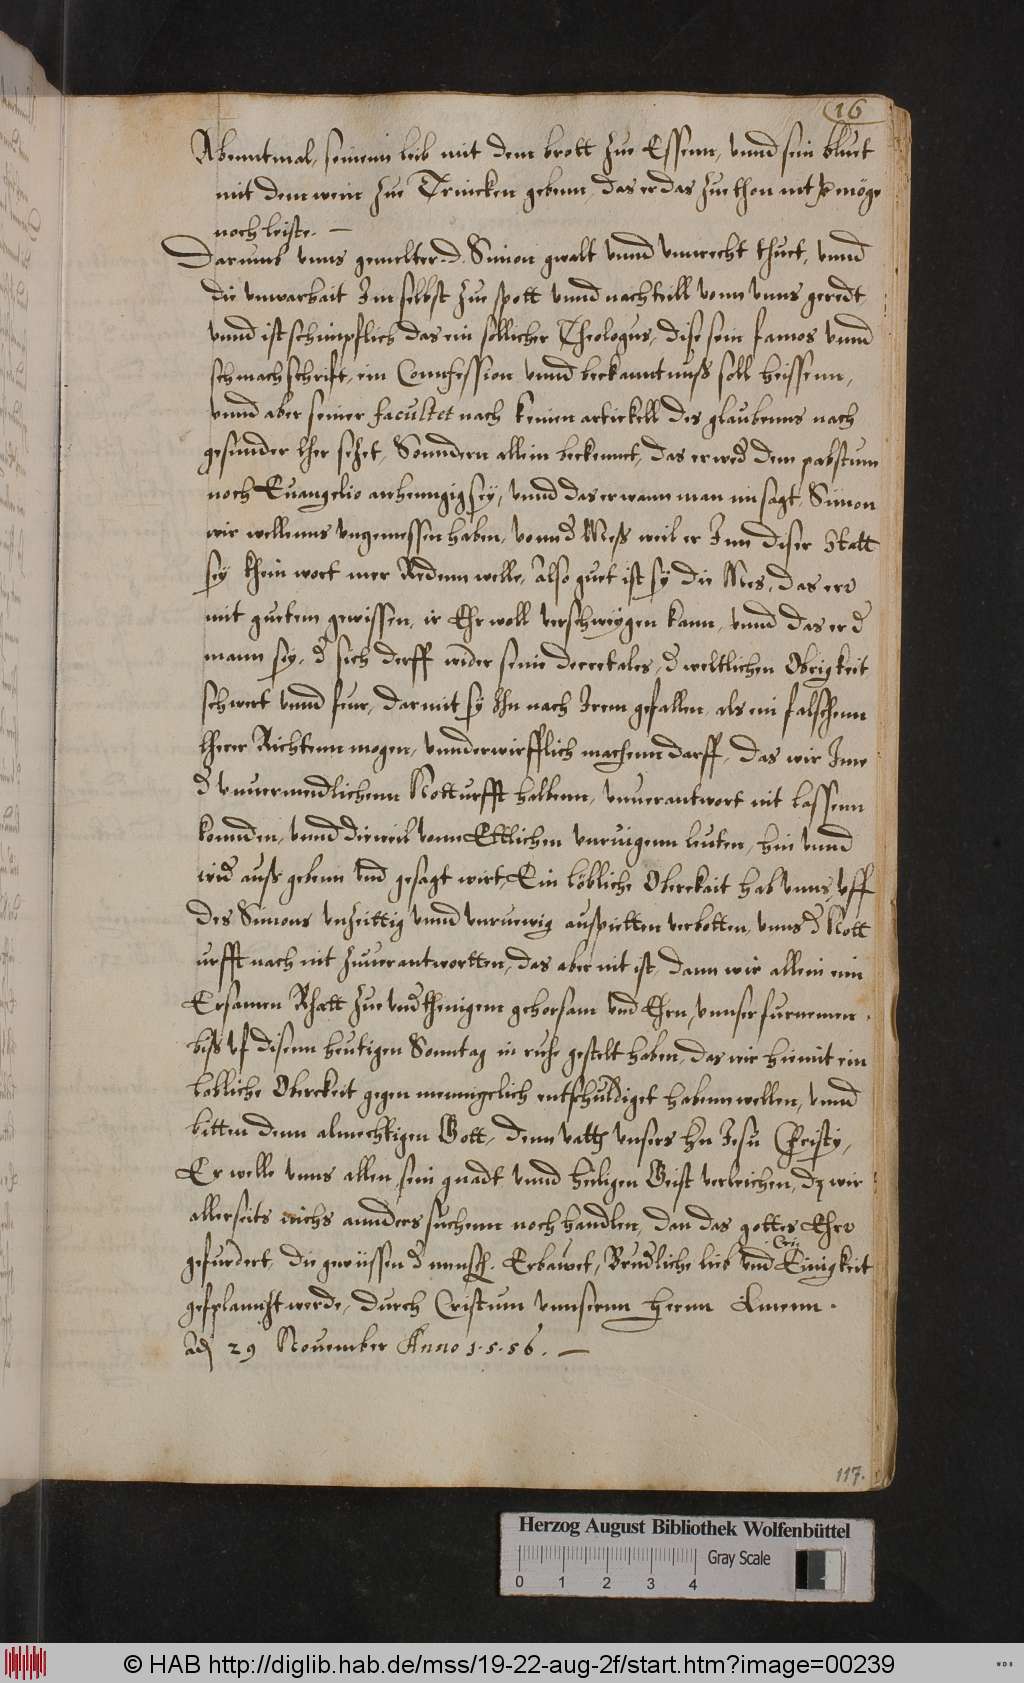 16
Abenntmal, seinenn leib mit dem brott zue Essenn, unnd sein bluet
mit dem wein zue Trincken gebenn, das er das zuethon nit vermöge
noch leiste. —
Darumb unns gemelter. D. Simon gwalt unnd unrecht thuet, unnd
die unwarhait Im selbst zue spott unnd nachteill vonn unns geredt,
unnd ist schimpflich das ein sollicher Theologus, dise sein famos unnd
schmachschrift, ein Connfession unnd beekanntnuß soll heissenn,
unnd aber seiner facultet nach keinen artickell des glaubenns nach
gesunder lher sezet, Sonndern allein beckennet, das er wed dem pabstum
noch Euangelio anhenngig sey, unnd das er wann man im sagt, Simon
wir wellenns ungemessen haben, vonn d Meß weil er Inn diser Statt
sey khein wort mer Redenn welle, Also guet ist sy die Mes, das ers
mit guetem gewissen, ir Ehr woll verschweygen kann, unnd das er d
mann sey, d sich derff wider seine decretales, d weltlichen Obrigkeit
schwert unnd feur, darmit sy Ihn nach Irem gefallen, als ein falschenn
lherer Richtenn mogen, unnderwirfflich machenn darff, das wir Ime
d unuermeidlichenn Notturfft halbenn, unuerantwort nit lassenn
konnden, unnd dieweil vonn Ettlichen unruigenn leuten, hin unnd
wid auß gebenn und gesagt wirt, Ein löbliche Oberckait hab unns, uff
des Simons unzeittig unnd unruewig außpietten verbotten, unns d Nott
urfft nach nit zuuerantwortten, das aber nit ist, dann wir allein eim
Ersamen Rhatt zue undthenigem gehorsam und Ehrn, unnser furnemen
biß uf disenn heutigen Sonntag in ruhe gestelt haben, das wir hiemit ein
lobliche Oberckeit gegen mennigelich entschuldiget habenn wellen, unnd
bitten denn almechtigen Gott, denn vatter unsers hn Jesu Christy,
Er welle unns allen, sein gnadt unnd heiligen Geist verleichen, dz wir
allerseits nichs annders suchenn noch handlen, dan das gottes Ehre
gefurdert, die gewissen d mensch. Erbawet, Brudliche lieb und Cri: Einigkeit
gepflannzt werde, durch Cristum unnserrn herrn Amenn.
Ad 29 November Anno 1.5.56. —
117.
Herzog August Bibliothek Wolfenbüttel
Gray Scale
0 1 2 3 4
© HAB http://diglib.hab.de/mss/19-22-aug-2f/start.htm?image=00239